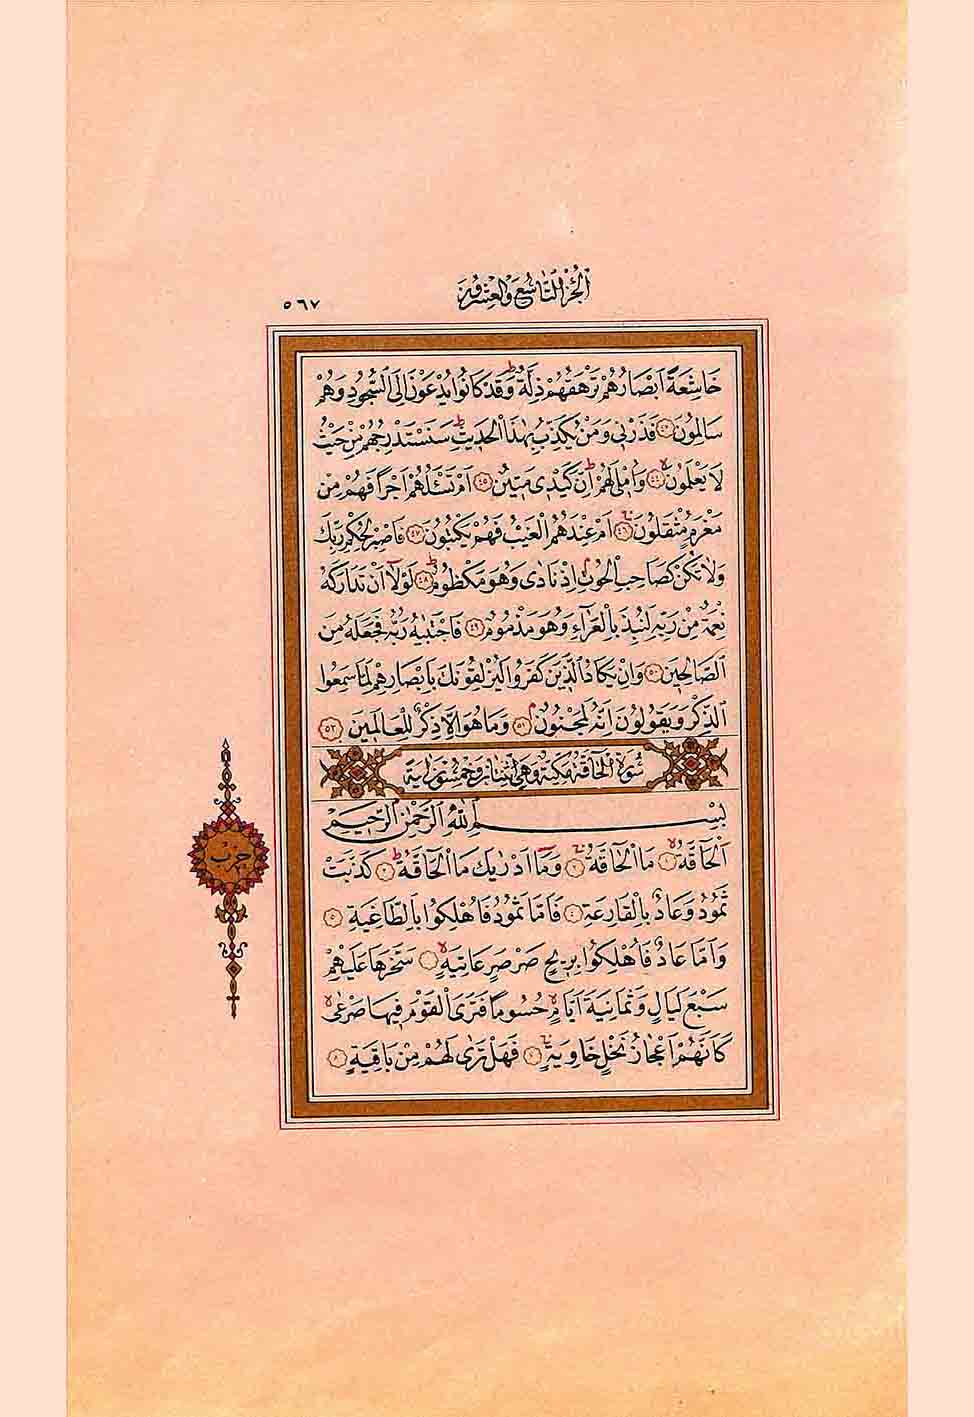 الجزء التاسع والعشرون
٥٦٧
خَاشِعَةً اَبْصَارُهُمْ تَرْهَقُهُمْ ذِلَّةٌ ط وَقَدْ كَانُوا يُدْعَوْنَ اِلَى السُّجُودِ وَهُمْ
سَالِمُونَ ٤٣ فَذَرْنٖى وَمَنْ يُكَذِّبُ بِهٰذَا الْحَدٖيثِ ط سَنَسْتَدْرِجُهُمْ مِنْ حَيْثُ
لَا يَعْلَمُونَ لا ٤٤ وَاُمْلٖى لَهُمْ ط اِنَّ كَيْدٖى مَتٖينٌ ٤٥ اَمْ تَسْئَلُهُمْ اَجْرًا فَهُمْ مِنْ
مَغْرَمٍ مُثْقَلُونَ ج ٤٦ اَمْ عِنْدَهُمُ الْغَيْبُ فَهُمْ يَكْتُبُونَ ٤٧ فَاصْبِرْ لِحُكْمِ رَبِّكَ
وَلَا تَكُنْ كَصَاحِبِ الْحُوتِ م اِذْ نَادٰى وَهُوَ مَكْظُومٌ ط ٤٨ لَوْلَٓا اَنْ تَدَارَكَهُ
نِعْمَةٌ مِنْ رَبِّهٖ لَنُبِذَ بِالْعَرَٓاءِ وَهُوَ مَذْمُومٌ ٤٩ فَاجْتَبٰيهُ رَبُّهُ فَجَعَلَهُ مِنَ
الصَّالِحٖينَ ٥٠ وَاِنْ يَكَادُ الَّذٖينَ كَفَرُوا لَيُزْلِقُونَكَ بِاَبْصَارِهِمْ لَمَّا سَمِعُوا
الذِّكْرَ وَيَقُولُونَ اِنَّهُ لَمَجْنُونٌ م ٥١ وَمَا هُوَ اِلَّا ذِكْرٌ لِلْعَالَمٖينَ ٥٢
سورة الحاقة مكية وهي اثنتان وخمسون اية
بِسْمِ اللّٰهِ الرَّحْمٰنِ الرَّحٖيمِ
اَلْحَٓاقَّةُ لا ١ مَا الْحَٓاقَّةُ ج ٢ وَمَٓا اَدْرٰيكَ مَا الْحَٓاقَّةُ ط ٣ كَذَّبَتْ
ثَمُودُ وَعَادٌ بِالْقَارِعَةِ ٤ فَاَمَّا ثَمُودُ فَاُهْلِكُوا بِالطَّاغِيَةِ ٥
وَاَمَّا عَادٌ فَاُهْلِكُوا بِرٖيحٍ صَرْصَرٍ عَاتِيَةٍ لا ٦ سَخَّرَهَا عَلَيْهِمْ
سَبْعَ لَيَالٍ وَثَمَانِيَةَ اَيَّامٍ لا حُسُومًا فَتَرَى الْقَوْمَ فٖيهَا صَرْعٰى لا
كَاَنَّهُمْ اَعْجَازُ نَخْلٍ خَاوِيَةٍ ج ٧ فَهَلْ تَرٰى لَهُمْ مِنْ بَاقِيَةٍ ٨
حزب